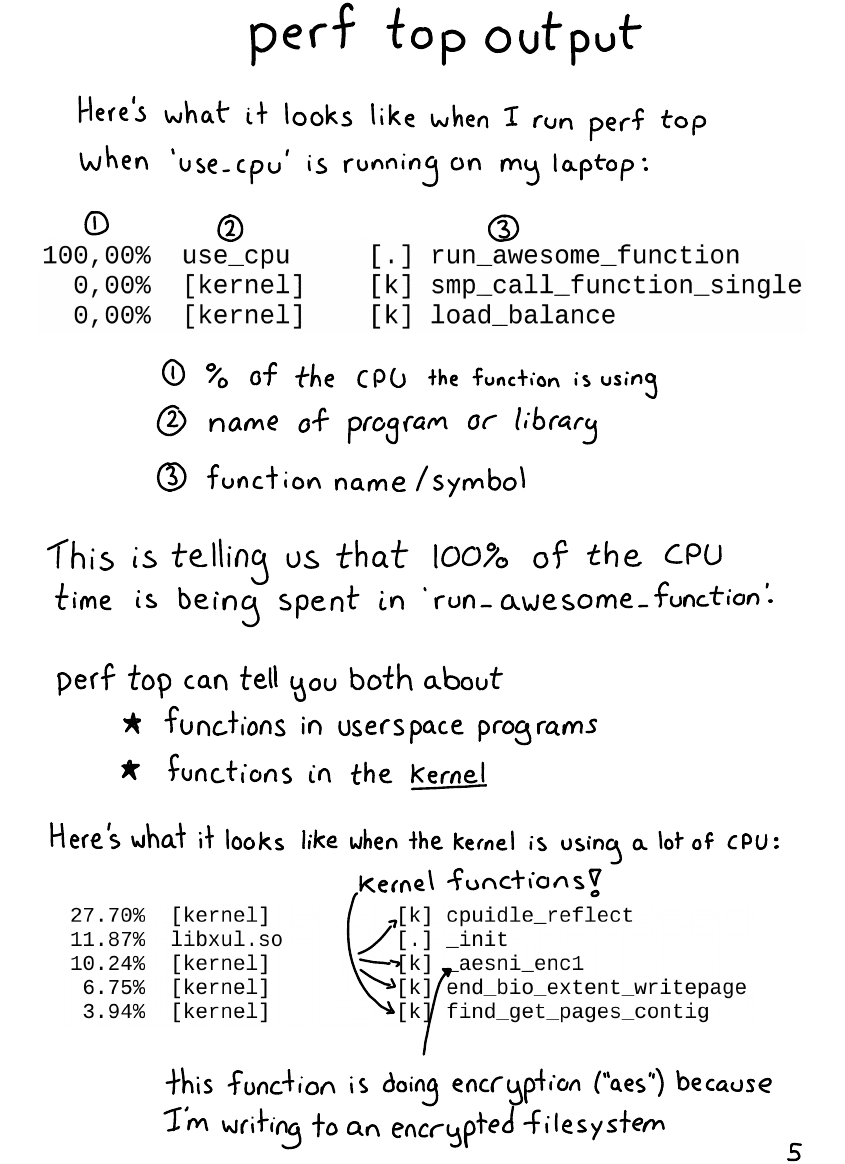 perf top output
Here's what it looks like when I run perf top
when 'use_cpu' is running on my laptop:
① ② ③
100,00% use_cpu [.] run_awesome_function
0,00% [kernel] [k] smp_call_function_single
0,00% [kernel] [k] load_balance
① % of the CPU the function is using
② name of program or library
③ function name/symbol
This is telling us that 100% of the CPU
time is being spent in 'run_awesome_function'.
perf top can tell you both about
★ functions in userspace programs
★ functions in the kernel
Here's what it looks like when the kernel is using a lot of CPU:
kernel functions!
27.70% [kernel] [k] cpuidle_reflect
11.87% libxul.so [.] _init
10.24% [kernel] [k] _aesni_enc1
6.75% [kernel] [k] end_bio_extent_writepage
3.94% [kernel] [k] find_get_pages_contig
this function is doing encryption ("aes") because
I'm writing to an encrypted filesystem
5